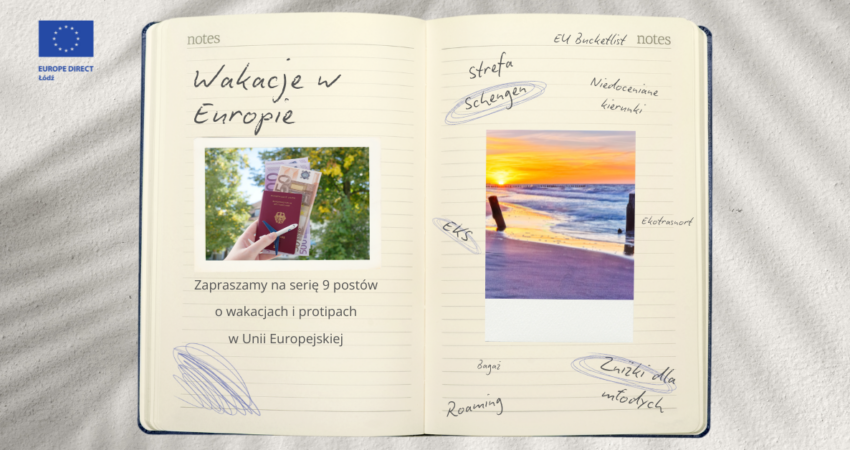 EUROPE DIRECT
Łódź
notes
Wakacje w
Europie
Zapraszamy na serię 9 postów
o wakacjach i protipach
w Unii Europejskiej
EU Bucketlist notes
strefa
Schengen
Niedoceniane
kierunki
EKS
Ekotrasnort
Bagaż
Zniżki dla
młodych
Roaming